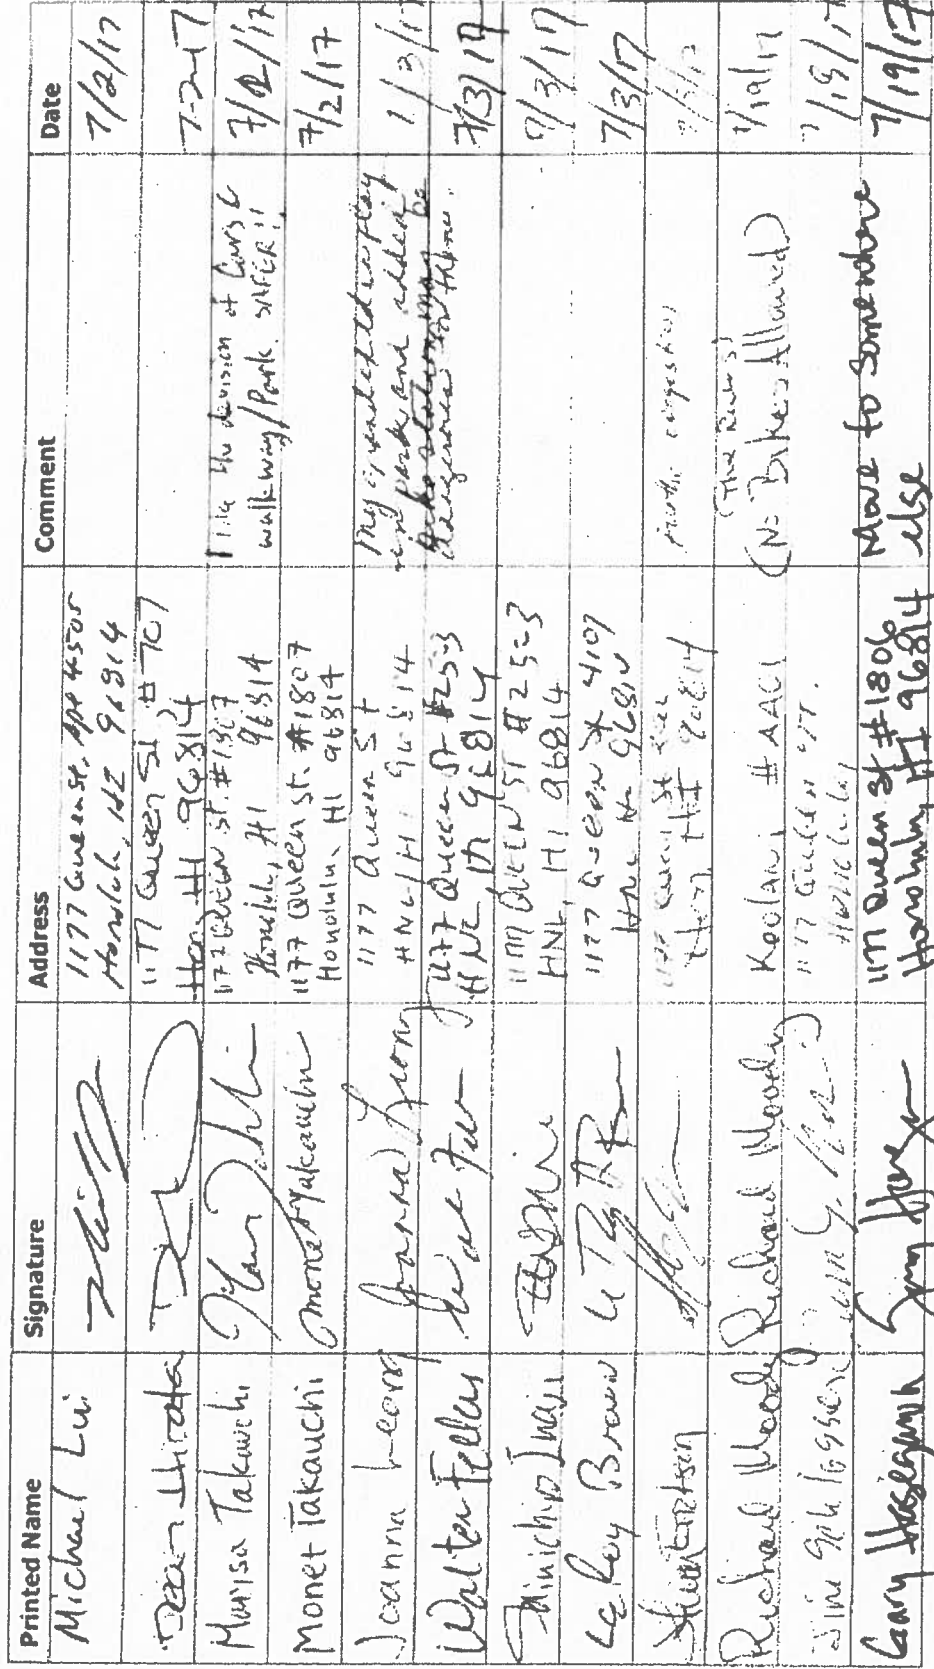 Printed Name
Signature
Address
Comment
Date
Michael Lui
1177 Queen St, Apt 4505
Honolulu, HI 96814
7/2/17
Dean Hirata
1177 Queen St, #707
Hon, HI 96814
7-2-17
Marisa Takauchi
1177 Queen St. #1807
Honolulu, HI 96814
I like the division of Cars &
walkway/Park. SAFER!!
7/2/17
Monet Takauchi
Monet Takauchi
1177 Queen St. #1807
Honolulu, HI 96814
7/2/17
Joanna Leong
Joanna Leong
1177 Queen St
HNL, HI 96814
My grandchildren play
park and added
bike station may be
dangerous for them.
/3/17
Walter Fellers
1177 Queen St #2503
HNL, HI 96814
7/3/17
1177 QUEEN ST #2503
HNL, HI 96814
/3/17
LeRoy Brown
1177 Queen St 4107
7/3/17
1177 Queen St
Richard Moody
Richard Moody
Keolani # AAC1
(No Bikes Allowed)
7/19/17
1177 Queen ST.
Honolulu,
/19/17
Gary Hasegawa
1177 Queen St #1806
Honolulu, HI 96814
Move to Somewhere
else
7/19/17